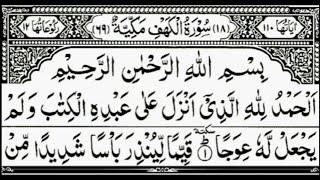 اٰيَاتُهَا ١١٠ (١٨) سُوْرَةُ الْكَهْفِ مَكِّيَّةٌ (٦٩) رُكُوْعَاتُهَا ١٢
بِسْمِ اللهِ الرَّحْمٰنِ الرَّحِيْمِ
اَلْحَمْدُ لِلّٰهِ الَّذِيْٓ اَنْزَلَ عَلٰى عَبْدِهِ الْكِتٰبَ وَلَمْ
يَجْعَلْ لَّهٗ عِوَجًا ۜ ① قَيِّمًا لِّيُنْذِرَ بَاْسًا شَدِيْدًا مِّنْ